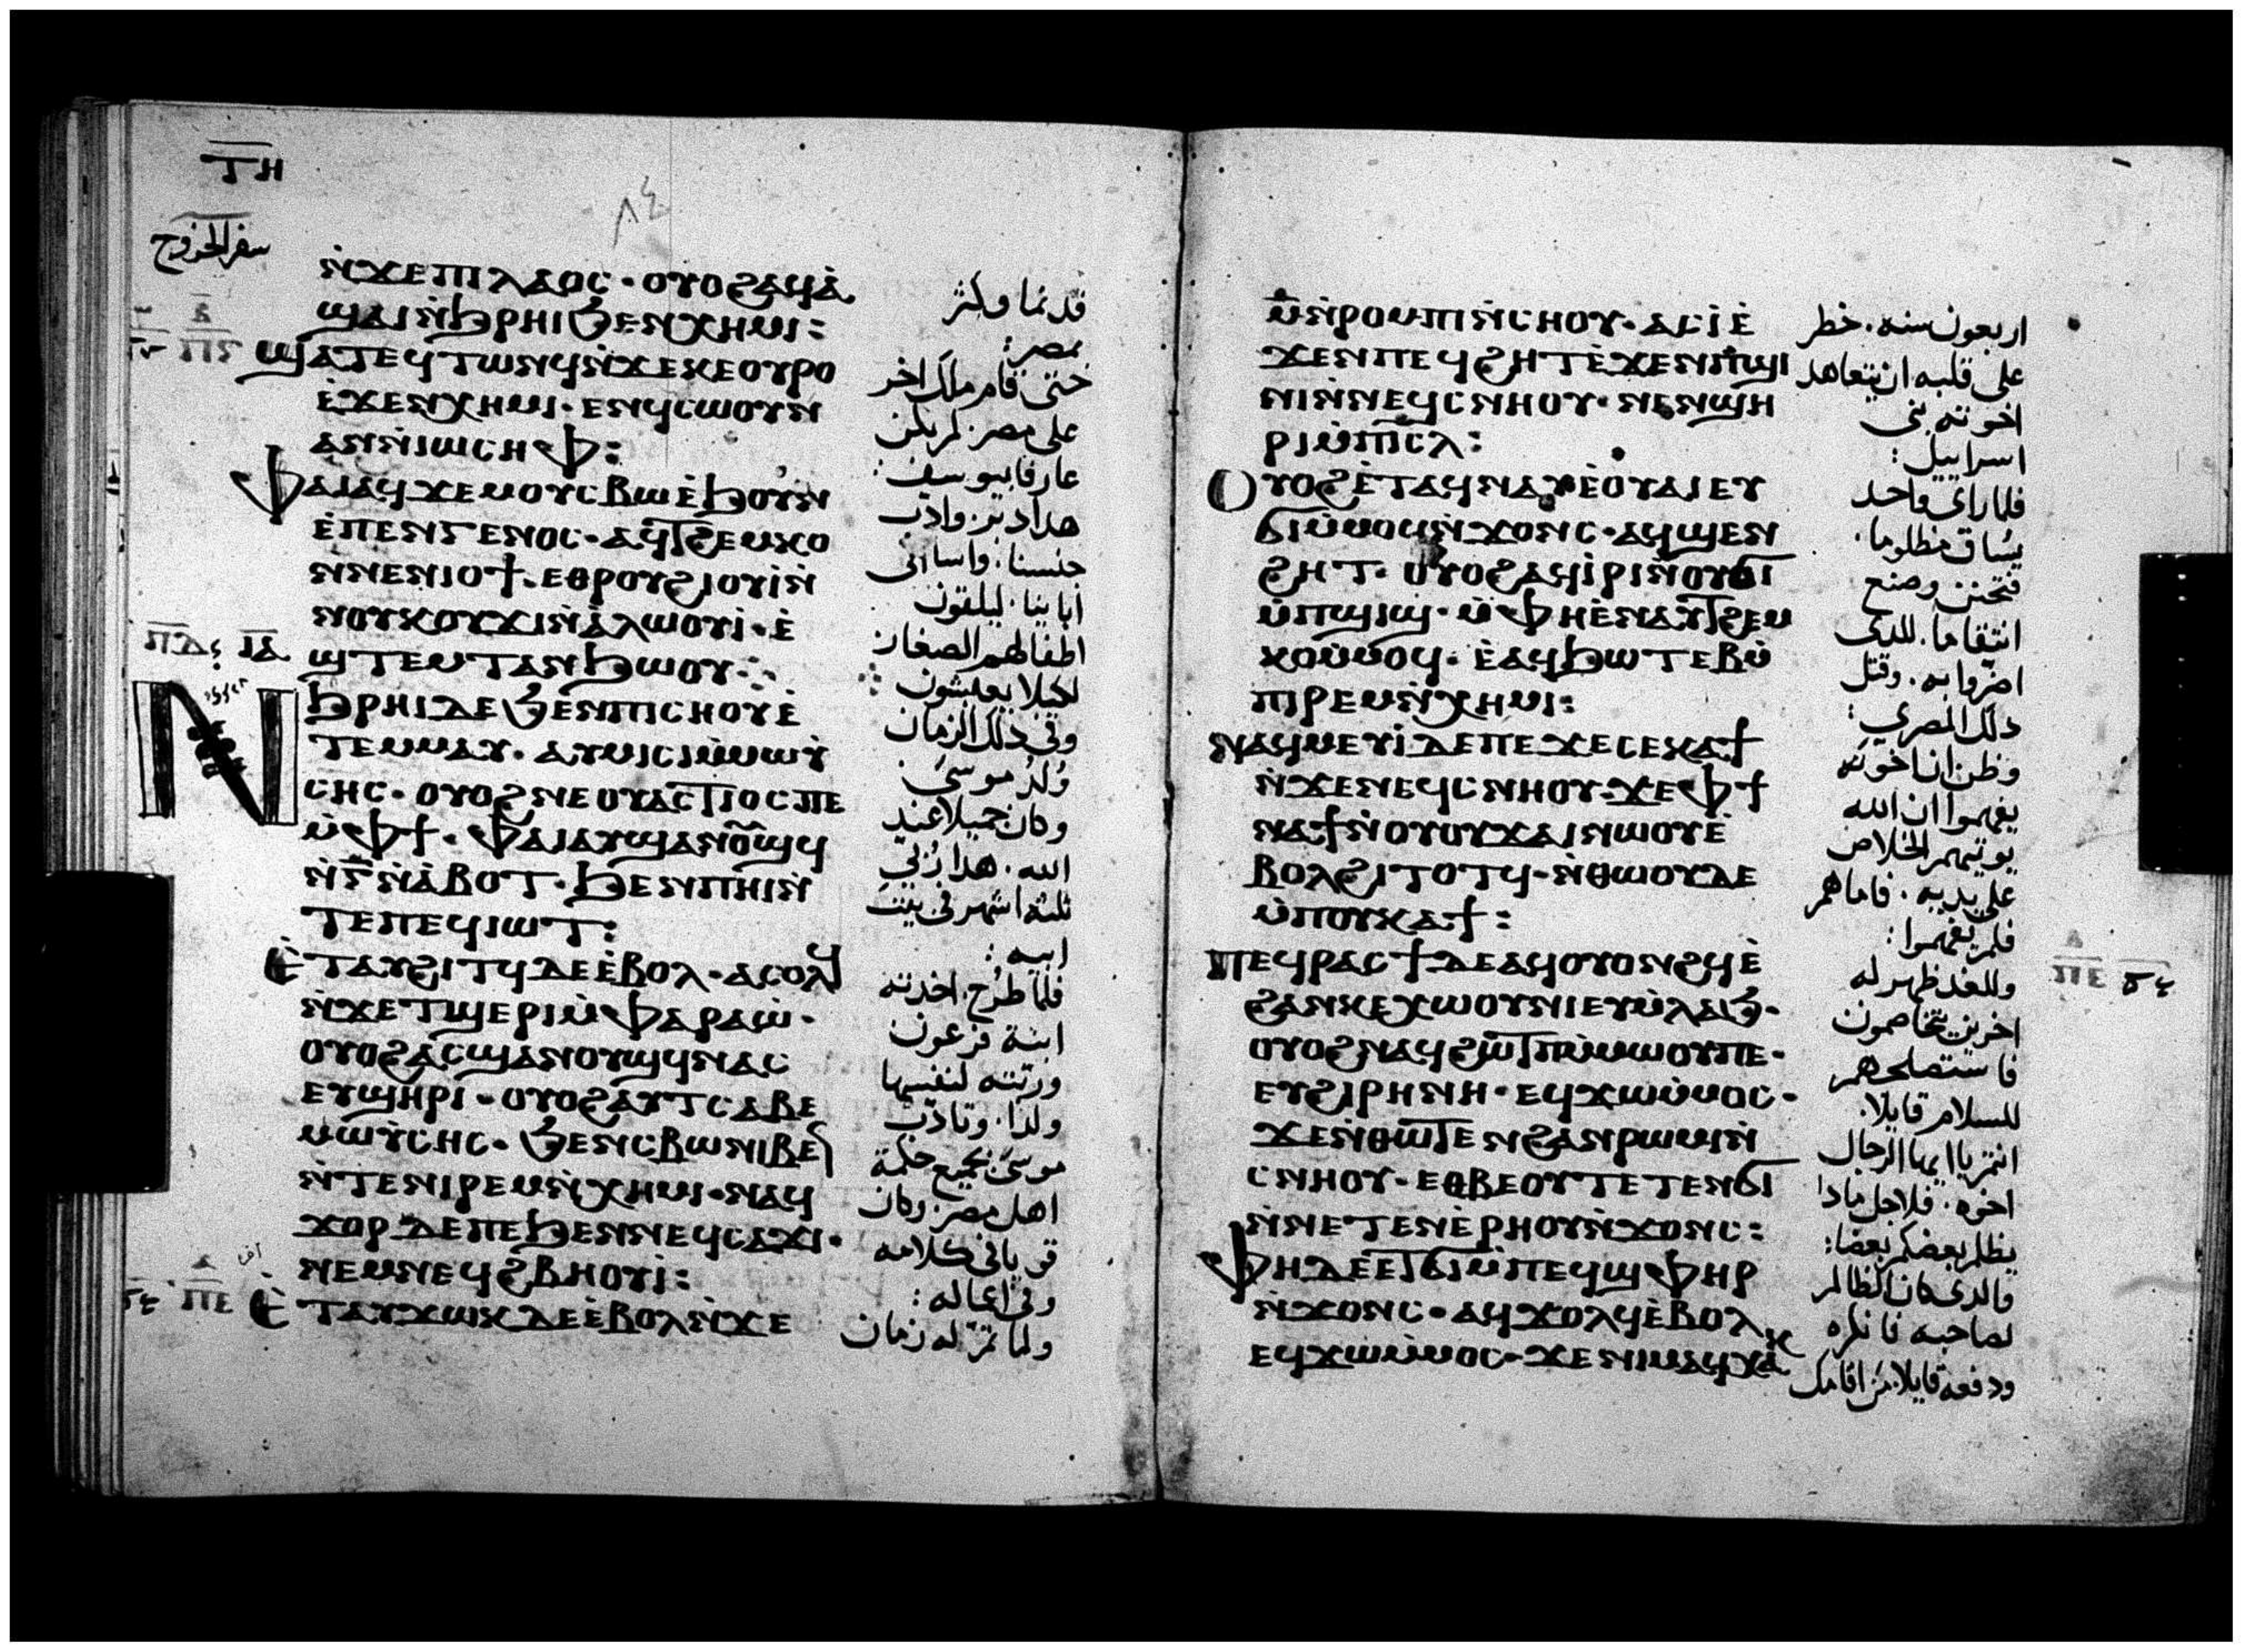 ⲧ̅ⲏ̅
٨٤
سفر الخروج
ⲛ̀ϫⲉⲡⲓⲗⲁⲟⲥ · ⲟⲩⲟϩⲁϥⲁ̀
ϣⲁⲓⲛ̀ϧⲣⲏⲓϧⲉⲛⲭⲏⲙⲓ :
ϣⲁⲧⲉϥⲧⲱⲛϥⲛ̀ϫⲉⲕⲉⲟⲩⲣⲟ
ⲉ̀ϫⲉⲛⲭⲏⲙⲓ · ⲉⲛϥⲥⲱⲟⲩⲛ
ⲁⲛⲛ̀ⲓⲱⲥⲏⲫ :
ⲫⲁⲓⲁϥϫⲉⲙⲟⲩⲥⲃⲱⲉ̀ϧⲟⲩⲛ
ⲉ̀ⲡⲉⲛⲅⲉⲛⲟⲥ · ⲁϥⲧϩⲉⲙⲕⲟ
ⲛⲛⲉⲛⲓⲟϯ · ⲉⲑⲣⲟⲩϩⲓⲟⲩⲓ̀ⲛ̀
ⲛⲟⲩⲕⲟⲩϫⲓⲛ̀ⲁ̀ⲗⲱⲟⲩⲓ̀ · ⲉ̀
ϣⲧⲉⲙⲧⲁⲛϧⲱⲟⲩ ·:·
ⲛ̀ϧⲣⲏⲓⲇⲉϧⲉⲛⲡⲓⲥⲏⲟⲩⲉ̀
ⲧⲉⲙⲙⲁⲩ · ⲁⲩⲙⲓⲥⲓⲙ̀ⲙⲱⲩ̀
ⲥⲏⲥ · ⲟⲩⲟϩⲛⲉⲟⲩⲁⲥⲧⲓⲟⲥⲡⲉ
ⲙ̀ⲫϯ · ⲫⲁⲓⲁⲩϣⲁⲛⲟⲩϣϥ
ⲛ̀ⲅ̅ⲛ̀ⲁ̀ⲃⲟⲧ · ϧⲉⲛⲡⲏⲓⲛ̀
ⲧⲉⲡⲉϥⲓⲱⲧ :
ⲉ̀ⲧⲁⲩϩⲓⲧϥⲇⲉⲉ̀ⲃⲟⲗ · ⲁⲥⲟⲗϥ
ⲛ̀ϫⲉⲧϣⲉⲣⲓⲙ̀ⲫⲁⲣⲁⲱ̀ ·
ⲟⲩⲟϩⲁⲥϣⲁⲛⲟⲩϣϥⲛⲁⲥ
ⲉⲩϣⲏⲣⲓ · ⲟⲩⲟϩⲁⲩⲧⲥⲁⲃⲉ
ⲙⲱⲩ̀ⲥⲏⲥ · ϧⲉⲛⲥⲃⲱⲛⲓⲃⲉⲛ
ⲛ̀ⲧⲉⲛⲓⲣⲉⲙⲛ̀ⲭⲏⲙⲓ · ⲛⲁϥ
ϫⲟⲣⲇⲉⲡⲉϧⲉⲛⲛⲉϥⲥⲁϫⲓ ·
ⲛⲉⲙⲛⲉϥϩⲃⲏⲟⲩⲓ̀ :
ⲉ̀ⲧⲁⲩϫⲱⲕⲇⲉⲉ̀ⲃⲟⲗⲛ̀ϫⲉ
قد نما وكثر
بمصر :
حتى قام ملك اخر
على مصر · لم يكن
عارفا بيوسف :
هدا دبر واذب
جنسنا · واسا الى
أباينا · ليلقون
اطفالهم الصغار
لكيلا يعيشون
وفي ذلك الزمان
ولد موسى
وكان جميلا عند
الله · هدا رُبي
ثلثه اشهر في بيت
ابيه :
فلما طُرح · اخدته
ابنة فرعون
وربته لنفسها
ولدًا · وتادب
موسى بجميع حكمة
اهل مصر · وكان
قويا في كلامه
وفي اعماله :
ولما تمّ له زمان
ⲙ̅ⲛ̀ⲣⲟⲙⲡⲓⲛ̀ⲥⲏⲟⲩ · ⲁⲥⲓ̀ⲉ̀
ϫⲉⲛⲡⲉϥϩⲏⲧⲉ̀ϫⲉⲙⲡϣⲓ
ⲛⲓⲛ̀ⲛⲉϥⲥⲛⲏⲟⲩ · ⲛⲉⲛϣⲏ
ⲣⲓⲙ̀ⲡⲓⲥⲗ :
ⲟⲩⲟϩⲉ̀ⲧⲁϥⲛⲁⲩⲉ̀ⲟⲩⲁⲓⲉⲩ
ϭⲓⲙ̀ⲙⲟϥⲛ̀ϫⲟⲛⲥ · ⲁϥϣⲉⲛ
ϩⲏⲧ · ⲟⲩⲟϩⲁϥⲓ̀ⲣⲓⲛ̀ⲟⲩϭⲓ
ⲙ̀ⲡϣⲓϣ · ⲙ̀ⲫⲏⲉ̀ⲛⲁⲩⲧϩⲉⲙ
ⲕⲟⲙ̀ⲙⲟϥ · ⲉ̀ⲁϥϧⲱⲧⲉⲃⲙ̀
ⲡⲓⲣⲉⲙⲛ̀ⲭⲏⲙⲓ :
ⲛⲁϥⲙⲉⲩⲓ̀ⲇⲉⲡⲉϫⲉⲥⲉⲕⲁϯ
ⲛ̀ϫⲉⲛⲉϥⲥⲛⲏⲟⲩ · ϫⲉⲫϯ
ⲛⲁϯⲛ̀ⲟⲩⲟⲩϫⲁⲓⲛⲱⲟⲩⲉ̀
ⲃⲟⲗϩⲓⲧⲟⲧϥ · ⲛ̀ⲑⲱⲟⲩⲇⲉ
ⲙ̀ⲡⲟⲩⲕⲁϯ :
ⲡⲉϥⲣⲁⲥϯⲇⲉⲁϥⲟⲩⲟⲛϩϥⲉ̀
ϩⲁⲛⲕⲉⲭⲱⲟⲩⲛⲓⲉⲩⲙ̀ⲗⲁϧ ·
ⲟⲩⲟϩⲛⲁϥϩⲱⲧⲡⲙ̀ⲙⲱⲟⲩⲡⲉ ·
ⲉⲩϩⲓⲣⲏⲛⲏ · ⲉϥϫⲱⲙ̀ⲙⲟⲥ ·
ϫⲉⲛ̀ⲑⲱⲧⲉⲛϩⲁⲛⲣⲱⲙⲓⲛ̀
ⲥⲛⲏⲟⲩ · ⲉⲑⲃⲉⲟⲩⲧⲉⲧⲉⲛϭⲓ
ⲛ̀ⲛⲉⲧⲉⲛⲉ̀ⲣⲏⲟⲩⲛ̀ϫⲟⲛⲥ :
ⲫⲏⲇⲉⲉⲧϭⲓⲙ̀ⲡⲉϥϣⲫⲏⲣ
ⲛ̀ϫⲟⲛⲥ · ⲁϥϫⲟⲗϥⲉ̀ⲃⲟⲗ
ⲉϥϫⲱⲙ̀ⲙⲟⲥ · ϫⲉⲛⲓⲙⲁϥⲭⲁⲕ
اربعون سنه · خطر
على قلبه ان يتعاهد
اخوته بني
اسراييل :
فلما راى واحد
يساق مظلوما ·
فتحنن وصنع
انتقاما · للدى
اضروا به · وقتل
دلك المصري :
وظن ان اخوته
يفهموا ان الله
يوتيهم الخلاص
على يديه · فاما هم
فلم يفهموا :
وللغد ظهر له
اخرين يتخاصمون
فاستصلحهم
للسلام قايلا ·
انتم يا ايها الرجال
اخوه · فلاجل مادا
يظلم بعضكم بعضا :
والدى كان الظالم
لصاحبه فانكره
ودفعه قايلا · من اقامك